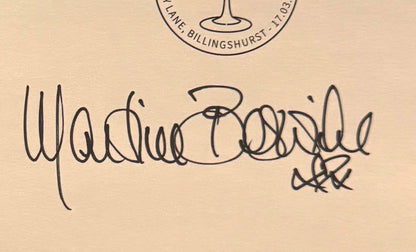 Y LANE, BILLINGSHURST - 17.03.
Martine Beswicke